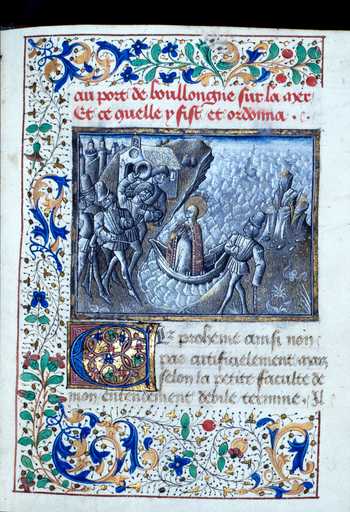 au port de boullongne sur la mer
Et ce quelle y fist et ordonna .
Cz proheme ainsi non
pas artificielement mais
selon la petite faculte de
mon entendement debile termine . Il